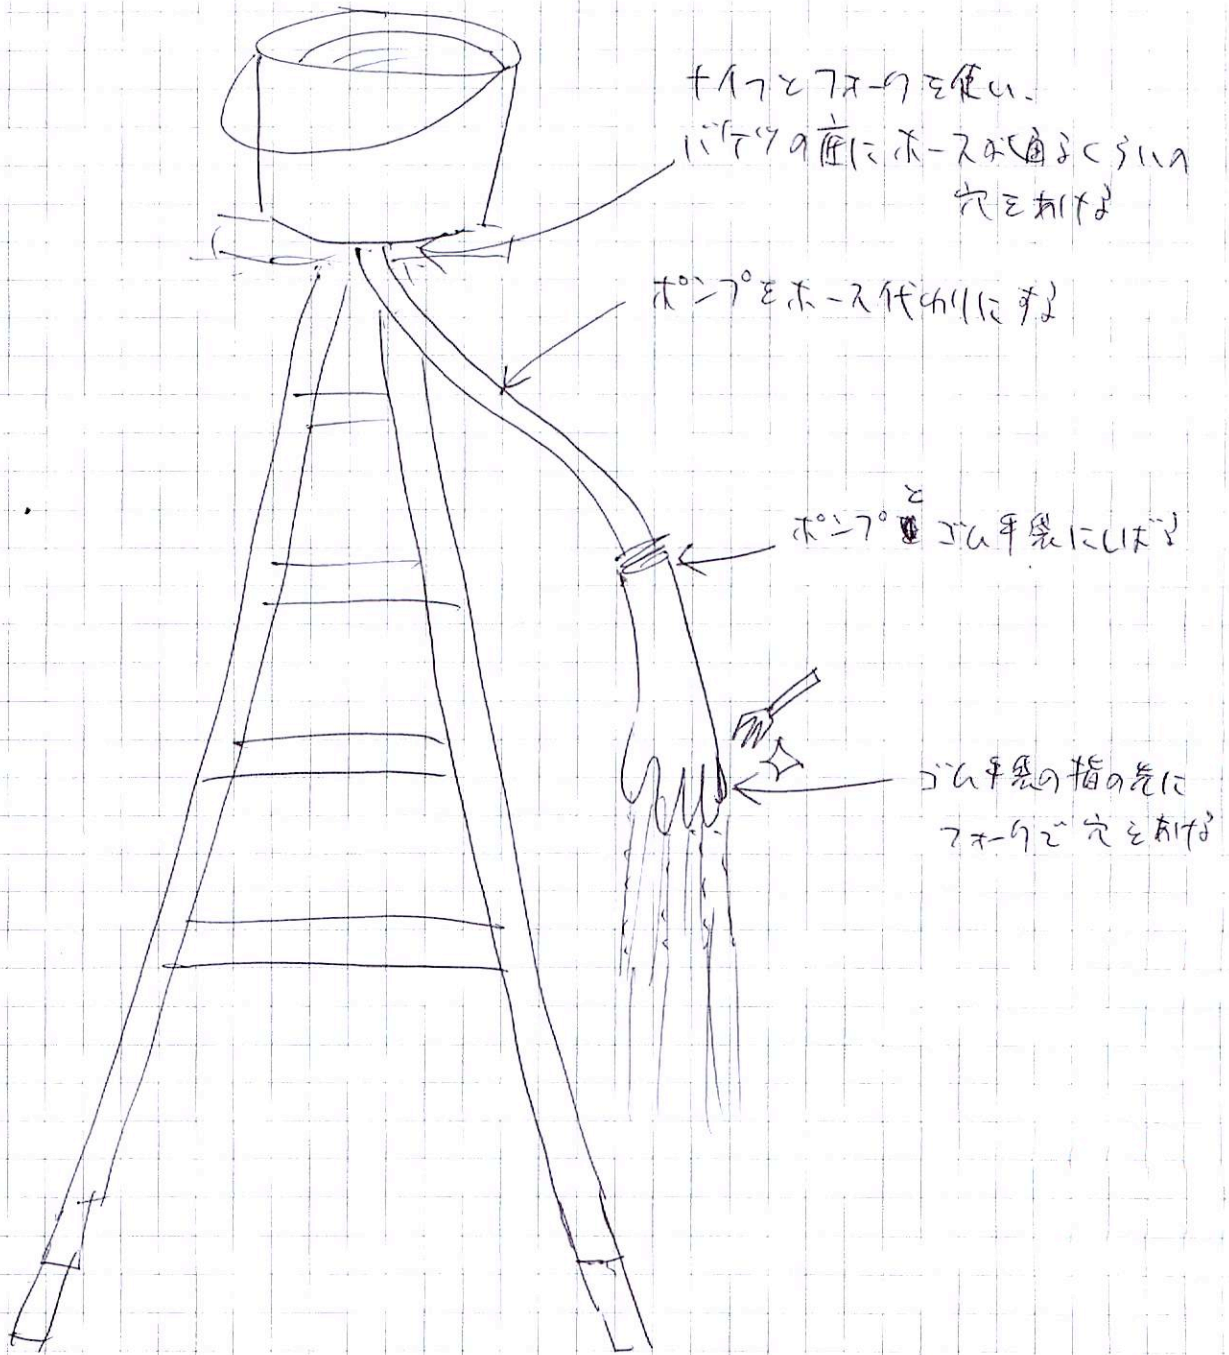 ナイフとフォークを使い、
バケツの底にホースが通るくらいの
穴をあける
ポンプをホース代わりにする
ポンプとゴム手袋にしばる
ゴム手袋の指の先に
フォークで穴をあける